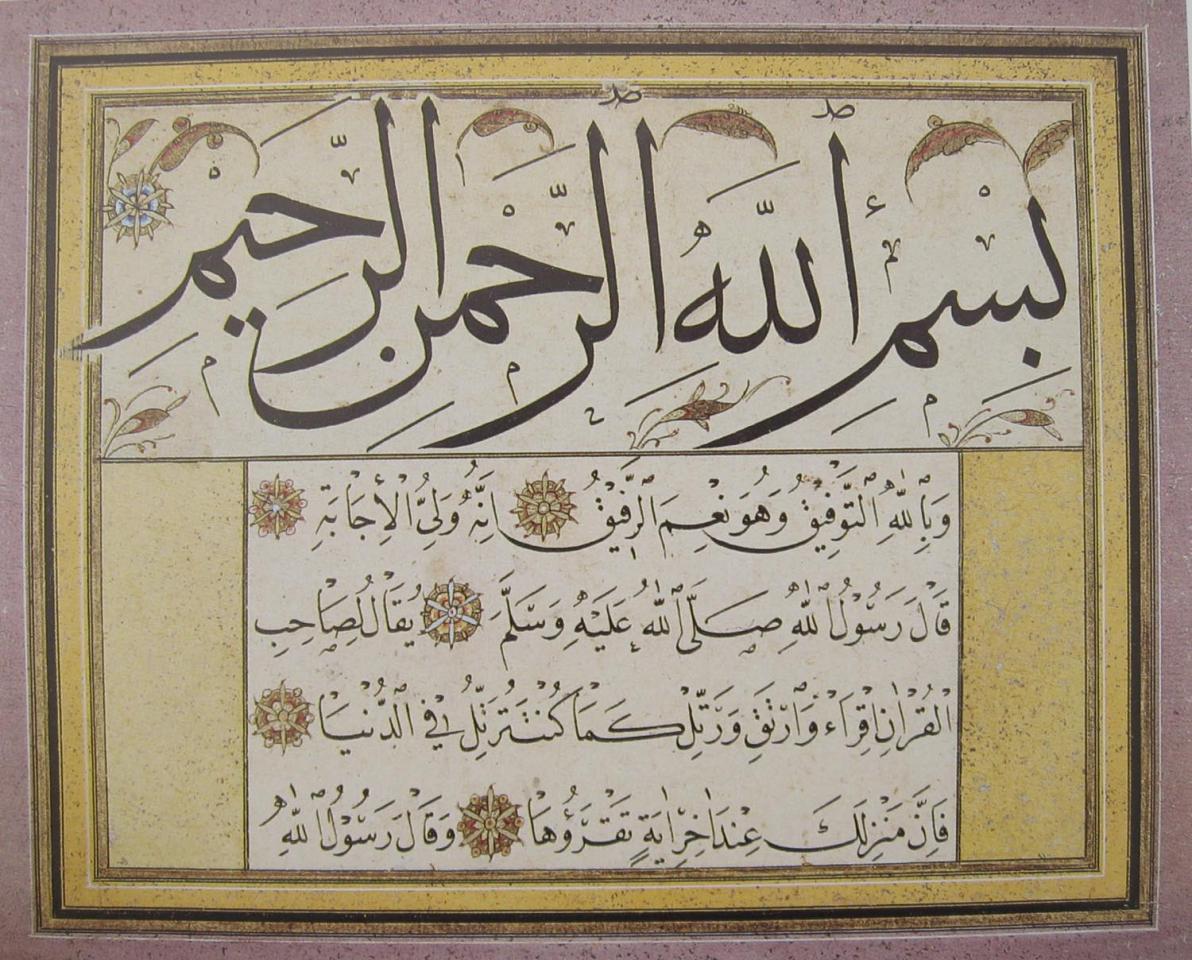 بِسْمِ اللّٰهِ الرَّحْمٰنِ الرَّحِيمِ
وَبِاللّٰهِ التَّوْفِيقُ وَهُوَ نِعْمَ الرَّفِيقُ اِنَّهُ وَلِيُّ الْاِجَابَةِ
قَالَ رَسُولُ اللّٰهِ صَلَّى اللّٰهُ عَلَيْهِ وَسَلَّمَ يُقَالُ لِصَاحِبِ
الْقُرْاٰنِ اِقْرَاءْ وَارْتَقِ وَرَتِّلْ كَمَا كُنْتَ تُرَتِّلُ فِي الدُّنْيَا
فَاِنَّ مَنْزِلَكَ عِنْدَ اٰخِرِ اٰيَةٍ تَقْرَؤُهَا وَقَالَ رَسُولُ اللّٰهِ